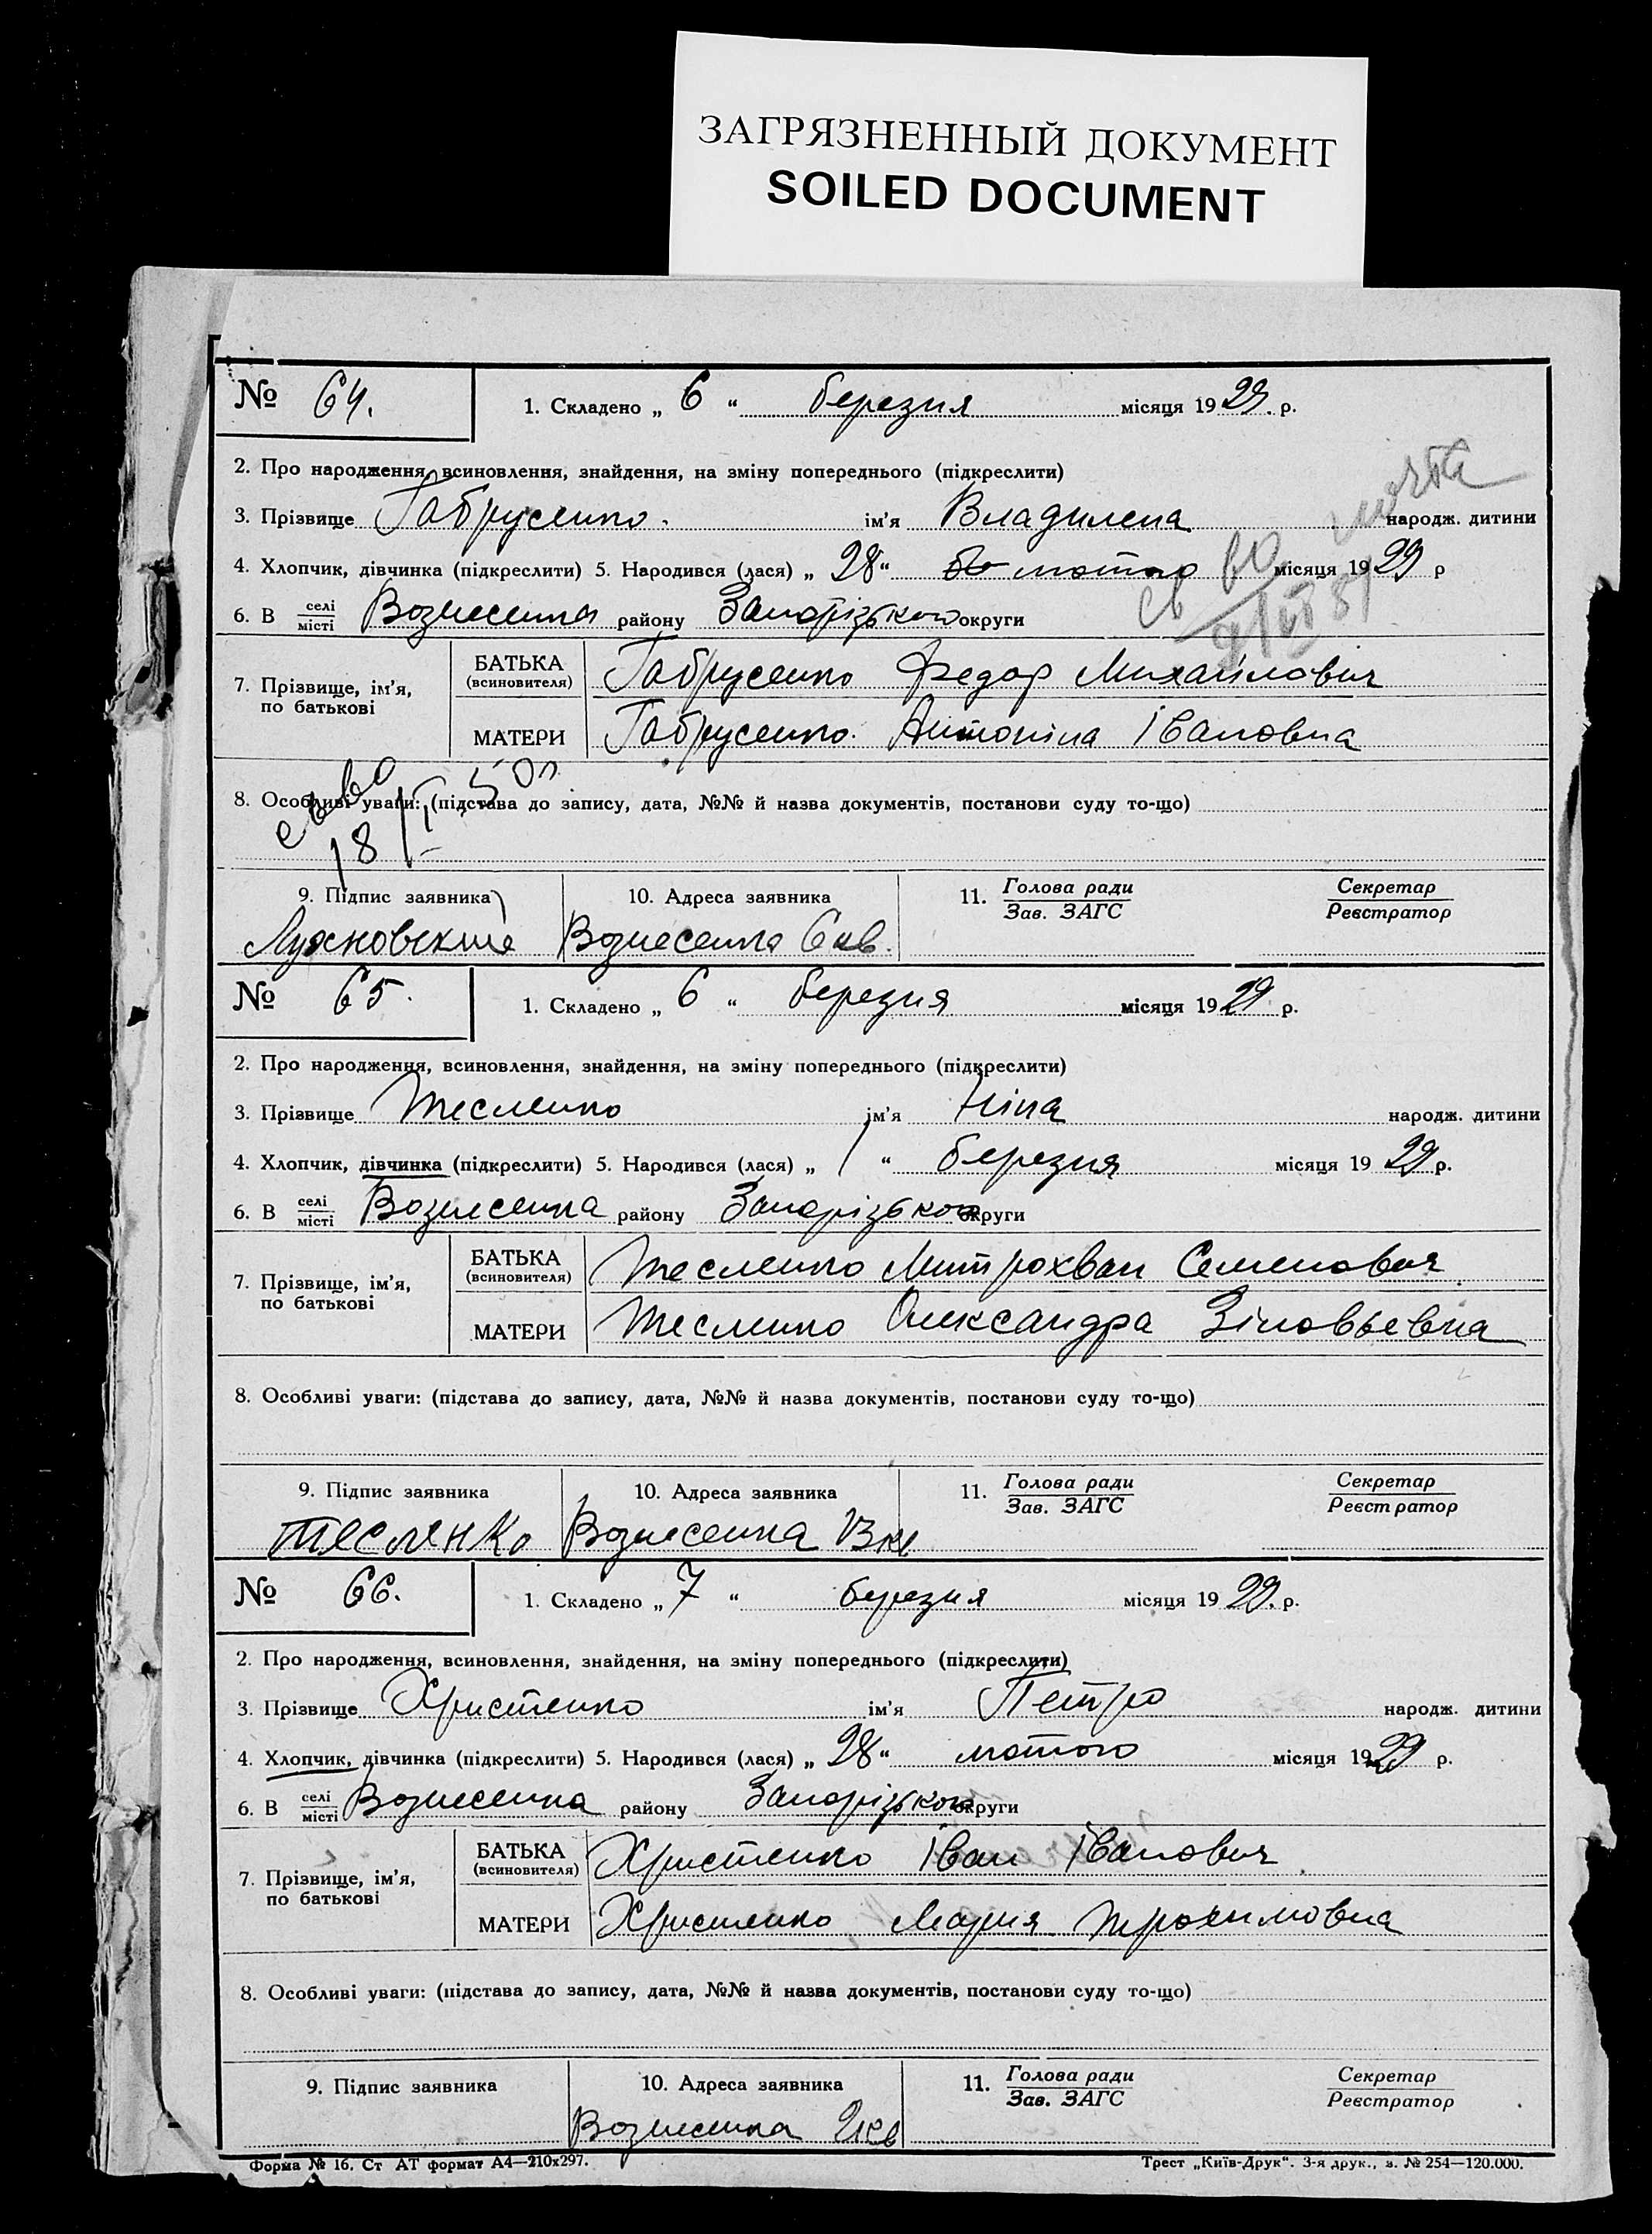 ЗАГРЯЗНЕННЫЙ ДОКУМЕНТ
SOILED DOCUMENT
№ 64. 1. Складено „ 6 “ березня місяця 1929. р.
2. Про народження, всиновлення, знайдення, на зміну попереднього (підкреслити)
3. Прізвище Габрусенко. ім’я Владилена народж. дитини
4. Хлопчик, дівчинка (підкреслити) 5. Народився (лася) „ 28 “ лютого місяця 1929 р
6. В селі/місті Вознесенка району Запорізького округи
7. Прізвище, ім’я, по батькові
БАТЬКА (всиновителя) Габрусенко Федор Михайлович
МАТЕРИ Габрусенко. Антоніна Івановна
8. Особливі уваги: (підстава до запису, дата, №№ й назва документів, постанови суду то-що)
9. Підпис заявника 10. Адреса заявника 11. Голова ради/Зав. ЗАГС Секретар/Реєстратор
Вознесенка 6 кв.
№ 65. 1. Складено „ 6 “ березня місяця 1929 р.
2. Про народження, всиновлення, знайдення, на зміну попереднього (підкреслити)
3. Прізвище Тесленко ім’я Ніна народж. дитини
4. Хлопчик, дівчинка (підкреслити) 5. Народився (лася) „ 1 “ березня місяця 1929 р.
6. В селі/місті Вознесенка району Запорізького округи
7. Прізвище, ім’я, по батькові
БАТЬКА (всиновителя) Тесленко Митрохван Семенович
МАТЕРИ Тесленко Олександра Зіновьевна
8. Особливі уваги: (підстава до запису, дата, №№ й назва документів, постанови суду то-що)
9. Підпис заявника 10. Адреса заявника 11. Голова ради/Зав. ЗАГС Секретар/Реєстратор
Тесленко Вознесенка
№ 66. 1. Складено „ 7 “ березня місяця 1929. р.
2. Про народження, всиновлення, знайдення, на зміну попереднього (підкреслити)
3. Прізвище Христенко ім’я Петро народж. дитини
4. Хлопчик, дівчинка (підкреслити) 5. Народився (лася) „ 28 “ лютого місяця 1929 р.
6. В селі/місті Вознесенка району Запорізького округи
7. Прізвище, ім’я, по батькові
БАТЬКА (всиновителя) Христенко Іван Іванович
МАТЕРИ Христенко Мария Трохимовна
8. Особливі уваги: (підстава до запису, дата, №№ й назва документів, постанови суду то-що)
9. Підпис заявника 10. Адреса заявника 11. Голова ради/Зав. ЗАГС Секретар/Реєстратор
Вознесенка 2 кв
Форма № 16. Ст АТ формат А4—210х297. Трест „Київ-Друк“. 3-я друк., з. № 254—120.000.